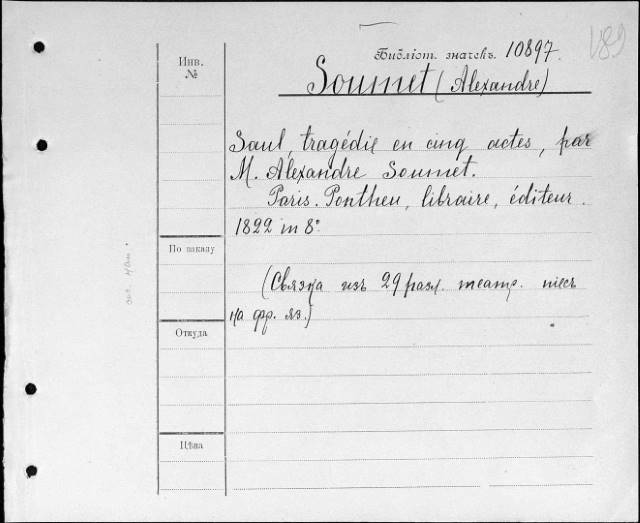 Библіот. значекъ. 10897.
V89
Инв.
№
Soumet (Alexandre)
Saul, tragédie en cinq actes, par
M. Alexandre Soumet.
Paris. Ponthieu, libraire, éditeur.
1822 in 8º
По заказу
(Связка изъ 29 разл. театр. пiесъ
на фр. яз.)
Откуда
Цѣна